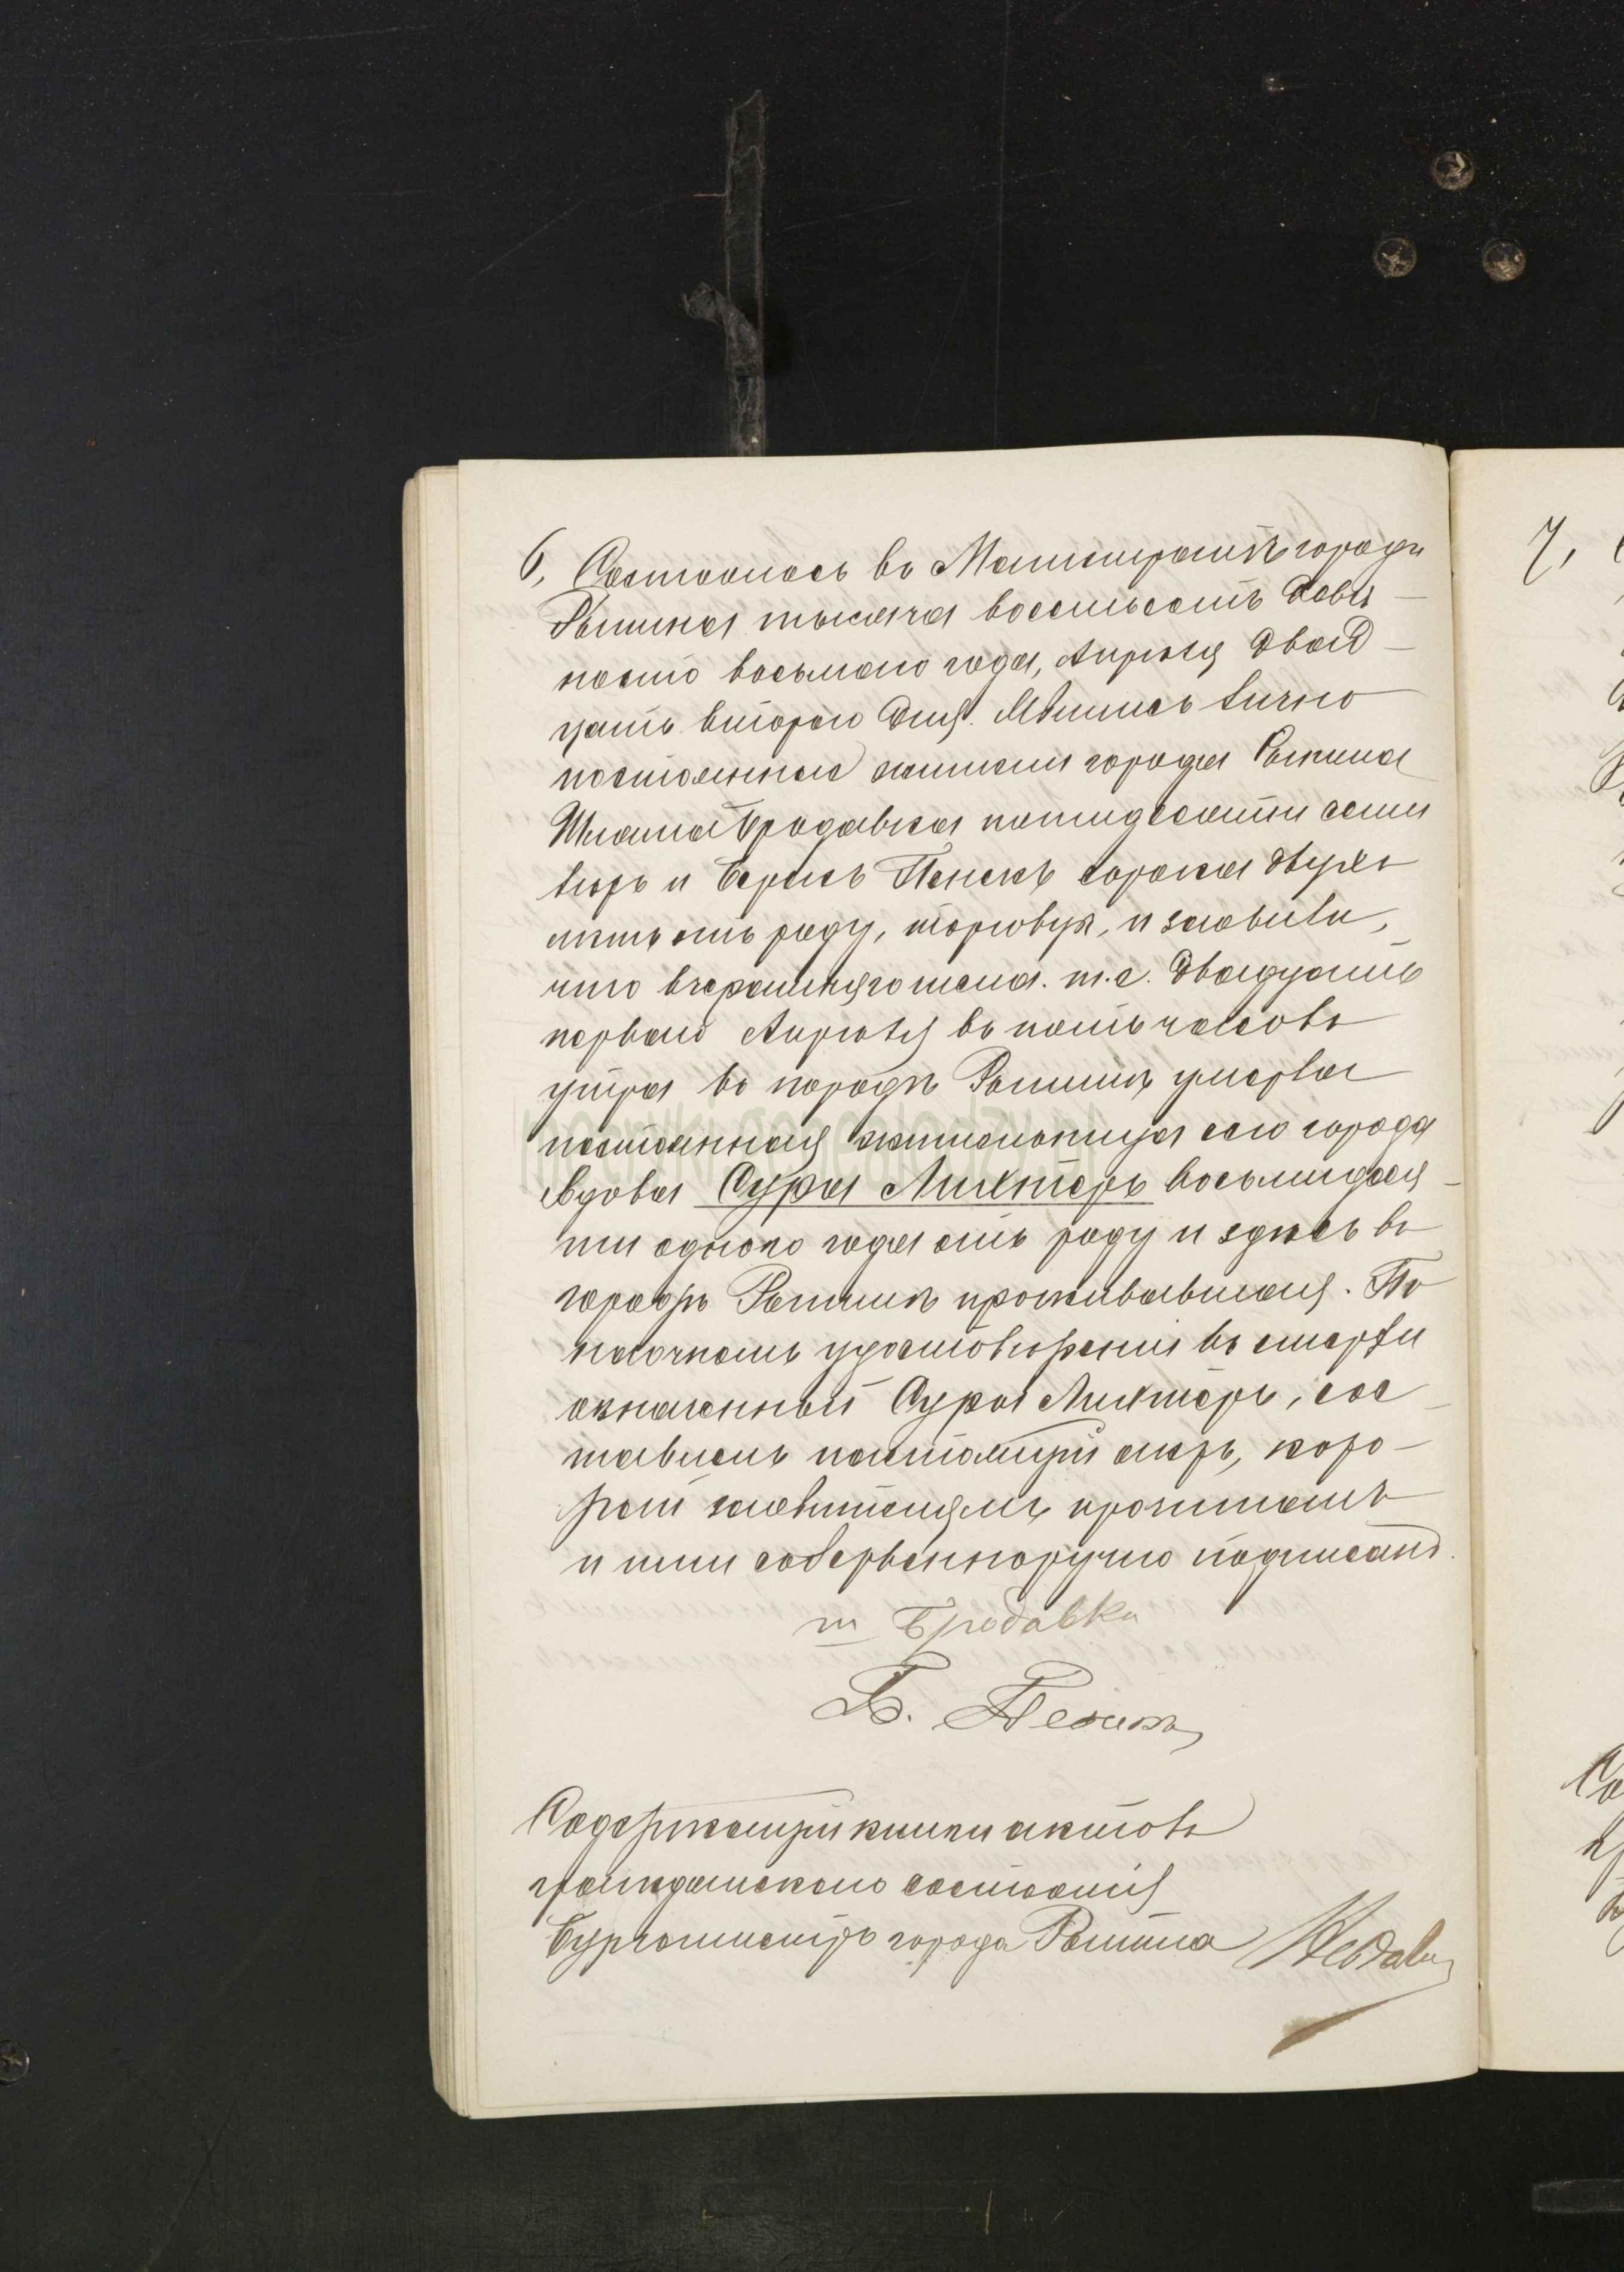 6, Состоялось въ Магистратѣ города
Рыпина тысяча восемьсотъ девя-
носто восьмого года, Апрѣля двад-
цать втораго дня. Явились лично
постоянные жители города Рыпина
Шлама Бродавка пятидесяти семи
лѣтъ и Берекъ Пенекъ сорока двухъ
лѣтъ отъ роду, торговцы, и заявили,
что вчерашняго числа т.е. двадцать
перваго Апрѣля въ пять часовъ
утра въ городѣ Рыпинѣ умерла
постоянная жительница сего города
вдова Сура Лихтеръ восьмидеся-
ти одного года отъ роду и здѣсь въ
городѣ Рыпинѣ проживавшая. По
наочномъ удостовѣреніи въ смерти
означенной Суры Лихтеръ, сос-
тавленъ настоящій актъ, кото-
рый заявителямъ прочитанъ
и ими собственноручно подписанъ.
Ш Бродавка
Б. Пенекъ
Содержащій книги актовъ
гражданскаго состоянія
Бургомистръ города Рыпина
7,